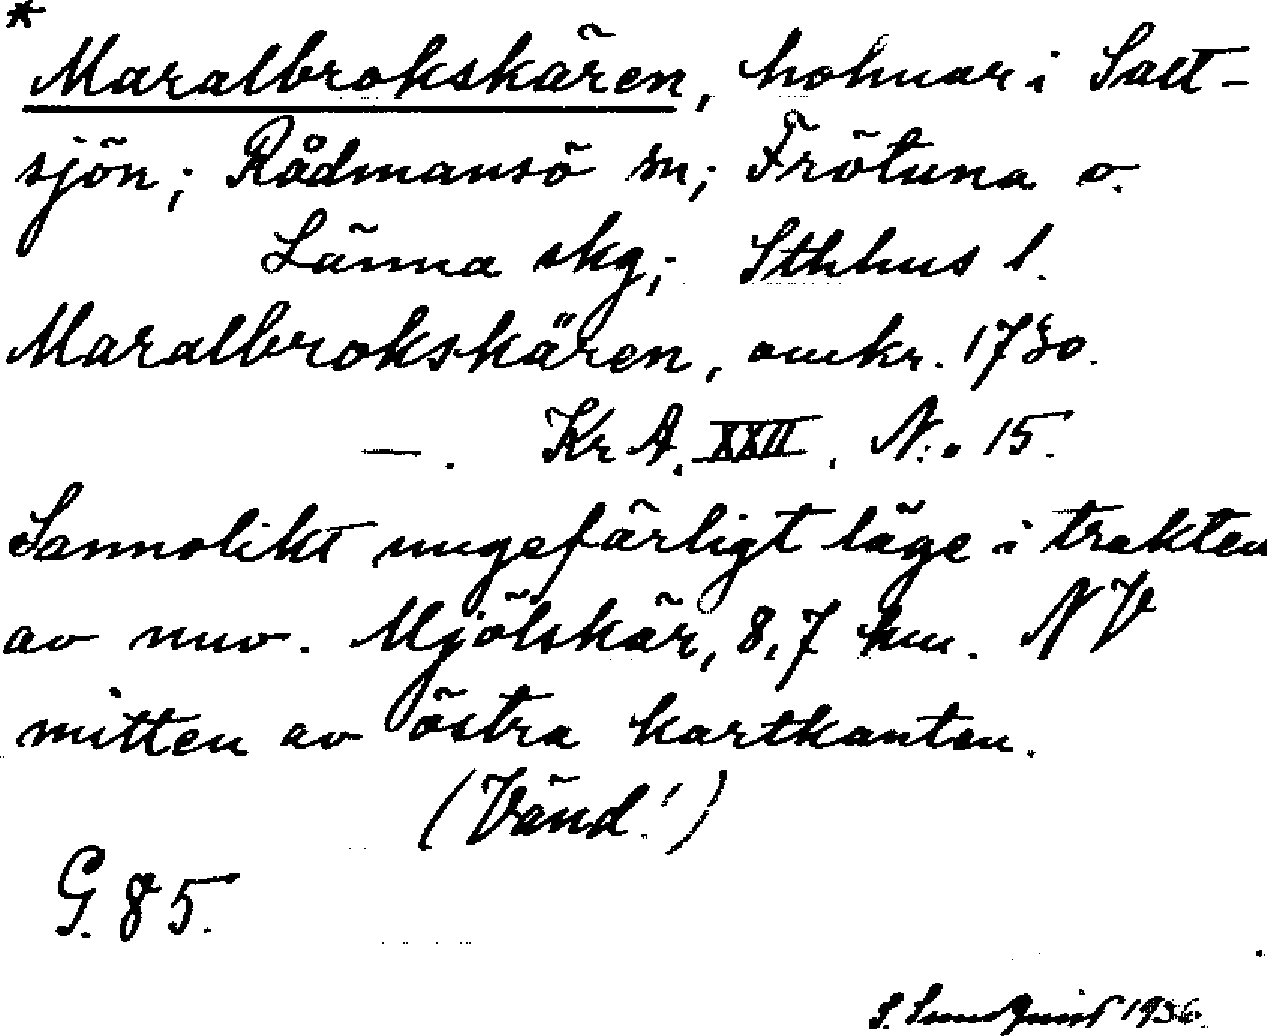 *
Maralbrokskären, holmar i Salt-
sjön; Rådmansö sn; Frötuna o.
Länna skg; Sthlms l.
Maralbrokskären, omkr. 1730.
—. Kr A. XXII. N:o 15.
Sannolikt ungefärligt läge i trakten
av nuv. Mjölskär, 8,7 km. NV
mitten av östra kartkanten.
(Vänd!)
G. 85.
S. Sundquist 1936.